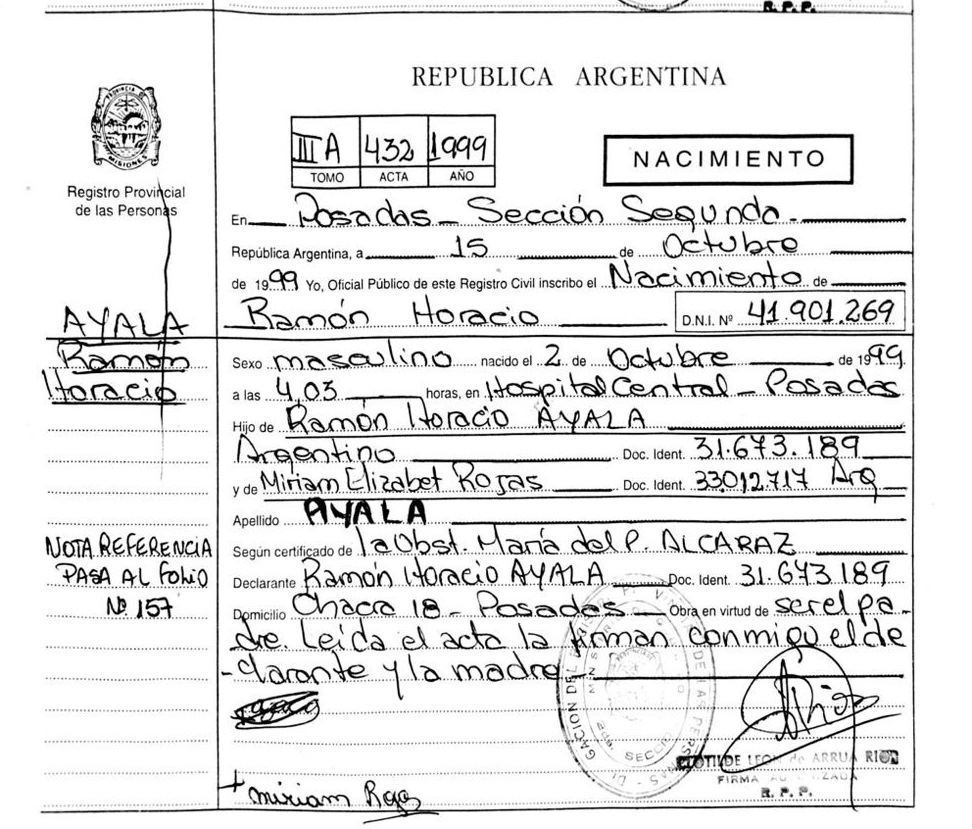 R. P. P.
REPUBLICA ARGENTINA
III A 432 1999
TOMO ACTA AÑO
NACIMIENTO
PROVINCIA DE MISIONES
Registro Provincial
de las Personas
En Posadas - Sección Segunda.
República Argentina, a 15 de Octubre
de 1999 Yo, Oficial Público de este Registro Civil inscribo el Nacimiento de
Ramón Horacio D.N.I. Nº 41.901.269
AYALA
Ramón
Horacio
Sexo masculino nacido el 2 de Octubre de 1999
a las 4,03 horas, en Hospital Central - Posadas
Hijo de Ramón Horacio AYALA
Argentino Doc. Ident. 31.673.189
y de Miriam Elizabet Rojas Doc. Ident. 33.012.717 Arg
Apellido AYALA
NOTA REFERENCIA
PASA AL FOLIO
Nº 157
Según certificado de la Obst. María del P. ALCARAZ
Declarante Ramón Horacio AYALA Doc. Ident. 31.673.189
Domicilio Chacra 18 - Posadas Obra en virtud de ser el pa-
dre. Leída el acta la firman conmigo el de
-clarante y la madre
SECCIO
CLOTILDE LEON de ARRUA RIOS
FIRMA
R. P. P.
+ miriam Rojas